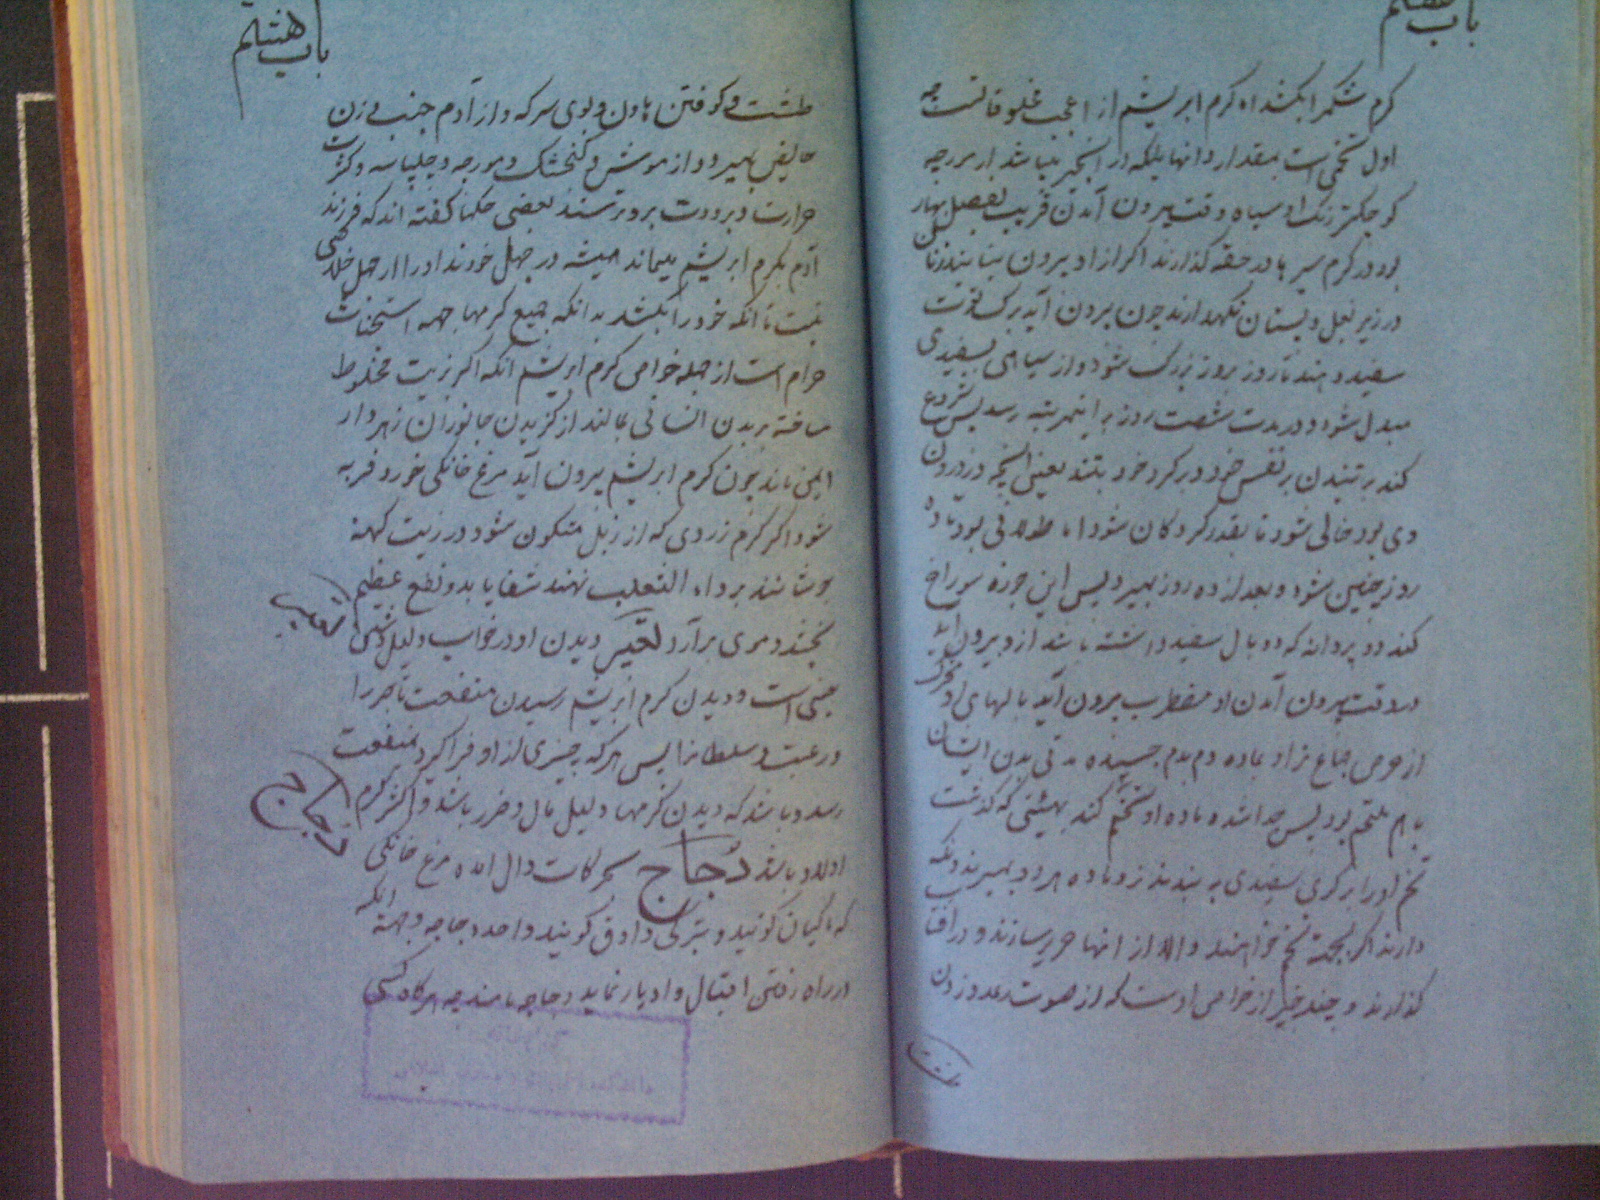 باب هشتم
کرم شکم را بکشد اه کرم ابریشم از اعجب مخلوقاتست چه
اول تخمی است بمقدار دانها بلکه در انجیر بباشد از مورچه
کوچکتر رنگ او سیاه وقت بیرون آمدن قریب بفصل بهار
بود در کرم سیر ها در حقه گذارند اگر از او بیرون نیاید زنان
در زیر بغل و پستان نگهدارند چون بیرون آید برک توت
سفید دهند تا روز بروز بزرگ شود و از سیاهی بسفیدی
مبدل شود و در مدت شصت روز باینمرتبه رسد پس شروع
کند بر تنیدن بر نفس خود در کرد خود بتند یعنی آنچه در درون
وی بود خالی شود تا بقدر کردکان شود اما طولانی بود تا ده
روز چنین شود و بعد از ده روز بمیرد پس این جوزه سوراخ
کند دو پروانه که دو بال سفید داشته باشد از و بیرون آید
و در وقت بیرون آمدن او مضطرب بیرون آید بالهای او متحرک
از حرص جماع نر او بماده دم بدم چسبیده مدتی بدن ایشان
باهم ملتحم بود پس جدا شده ماده او تخم کند بهیئتی که گذشت
تخم او را بر کرکی سفیدی بر بندند نر و ماده هر دو بمیرند و نکه
دارند اگر بجهت تخم خواهند والا از انها حریر سازند و در آفتاب
گذارند و چند چیز از خواص اوست که از صوت رعد و زدن
طشت
باب هشتم
طشت و کوفتن هاون و بوی سرکه و از آدم جنب و زن
حایض بمیرد و از موش و کنجشک و مورچه و چلپاسه و کثرت
حرارت و برودت برو ترسند بعضی حکما گفته اند که فرزند
آدم بکرم ابریشم میماند همیشه در جهل خود تند او را از جهل خلاصی
نیست تا انکه خود را بکشد بدانکه جمیع کرمها جهه استخباث
حرام است از جمله خواص کرم ابریشم انکه اگر بزیت مخلوط
ساخته بر بدن انسانی بمالند از گزیدن جانوران زهردار
ایمن ماند چون کرم ابریشم بیرون آید مرغ خانگی خورد فربه
شود اگر کرم زردی که از زبل متکون شود در زیت کهنه
جوشانند بر داء الثعلب نهند شفا یابد و نفع عظیم
بخشد و موی برآرد تعبیر دیدن او در خواب دلیل دشمن
تعبیر
جنبی است و دیدن کرم ابریشم رسیدن منفعت تاجر را
و رعیت و سلطانرا پس هر که چیزی از او فرا گیرد منفعت
رسد و باشد که دیدن کرمها دلیل مال و ضرر باشد و اکثر کرم
اولاد باشد دجاج بحرکات دال اه مرغ خانگی
دجاج
که ماکیان گویند و بترکی داوق گویند واحد دجاجه و جهة انکه
در راه رفتن اقبال و ادبار نماید دجاجه نامند چه هرگاه کسی